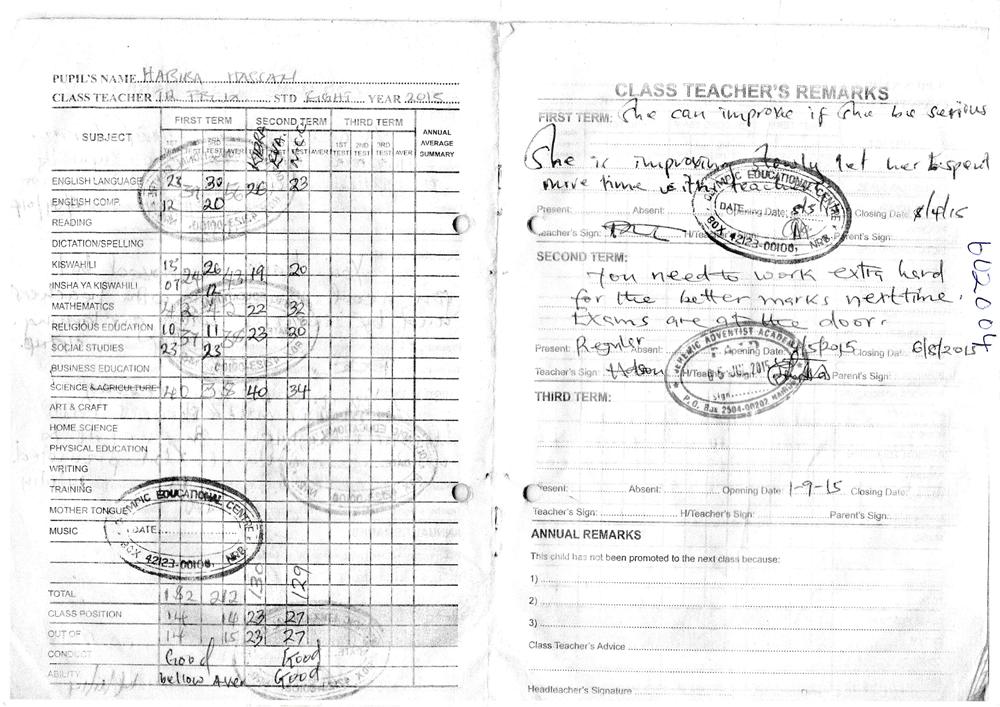 PUPIL'S NAME HABIBA HASSAN
CLASS TEACHER STD EIGHT YEAR 2015
SUBJECT FIRST TERM SECOND TERM THIRD TERM ANNUAL AVERAGE SUMMARY
1ST TEST 2ND TEST 3RD TEST AVER 1ST TEST 2ND TEST 3RD TEST AVER
ENGLISH LANGUAGE 28 30 26 23
ENGLISH COMP. 12 20
READING
DICTATION/SPELLING
KISWAHILI 15 26 19 20
INSHA YA KISWAHILI 07 12
MATHEMATICS 42 22 32
RELIGIOUS EDUCATION 10 11 23 20
SOCIAL STUDIES 23 23
BUSINESS EDUCATION
SCIENCE & AGRICULTURE 40 38 40 34
ART & CRAFT
HOME SCIENCE
PHYSICAL EDUCATION
WRITING
TRAINING
MOTHER TONGUE
MUSIC
OLYMPIC EDUCATIONAL CENTRE
DATE
BOX 42123-00100, NRB
TOTAL 182 212 130 129
CLASS POSITION 14 14 23 27
OUT OF 14 15 23 27
CONDUCT Good Good
ABILITY bellow Aver Good
CLASS TEACHER'S REMARKS
FIRST TERM: She can improve if She be serious
She is improving slowly let her spend
more time with teachers
OLYMPIC EDUCATIONAL CENTRE
DATE
BOX 42123-00100, NRB
Present: Absent: Opening Date: Closing Date: 8/4/15
Teacher's Sign: H/Teacher's Parent's Sign:
SECOND TERM:
You need to work extra hard
for the better marks next time.
Exams are at the door.
Present: Regular Absent: Opening Date: /5/2015 Closing Date: 6/8/2015
Teacher's Sign: H/Teacher's Parent's Sign:
ADVENTIST ACADEMY
P.O. Box 2504-00202 NAIROBI
THIRD TERM:
Present: Absent: Opening Date: 1-9-15 Closing Date:
Teacher's Sign: H/Teacher's Sign: Parent's Sign:
ANNUAL REMARKS
This child has not been promoted to the next class because:
1)
2)
3)
Class Teacher's Advice
Headteacher's Signature
602004